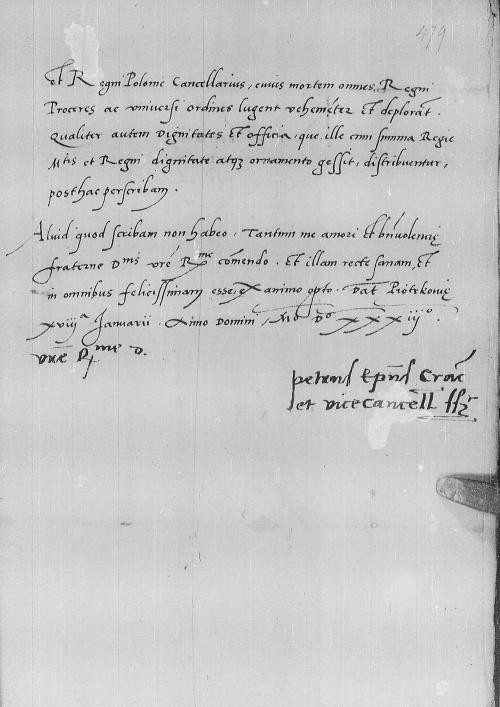 479
et Regni Polonie Cancellarius, cuius mortem omnes Regni
Proceres ac vniuersi ordines lugent vehemẽter Et deplorãt.
Qualiter autem Dignitates Et officia, que ille cum summa Regie
Mtis et Regni dignitate atqz ornamento gessit, distribuentur,
posthac perscribam.
Aliud quod scribam non habeo, Tantum me amori et bñuolentię
fraterne Dnis vrẽ Rme cõmendo. Et illam recte sanam, Et
in omnibus felicissimam esse, ex animo opto. Dat Piotrkouię
xviija Januarii. Anno Domini, Mo. Do xxxiijo.
vrẽ Rme D.
petrus Epũs Crac̃
et vicecancell